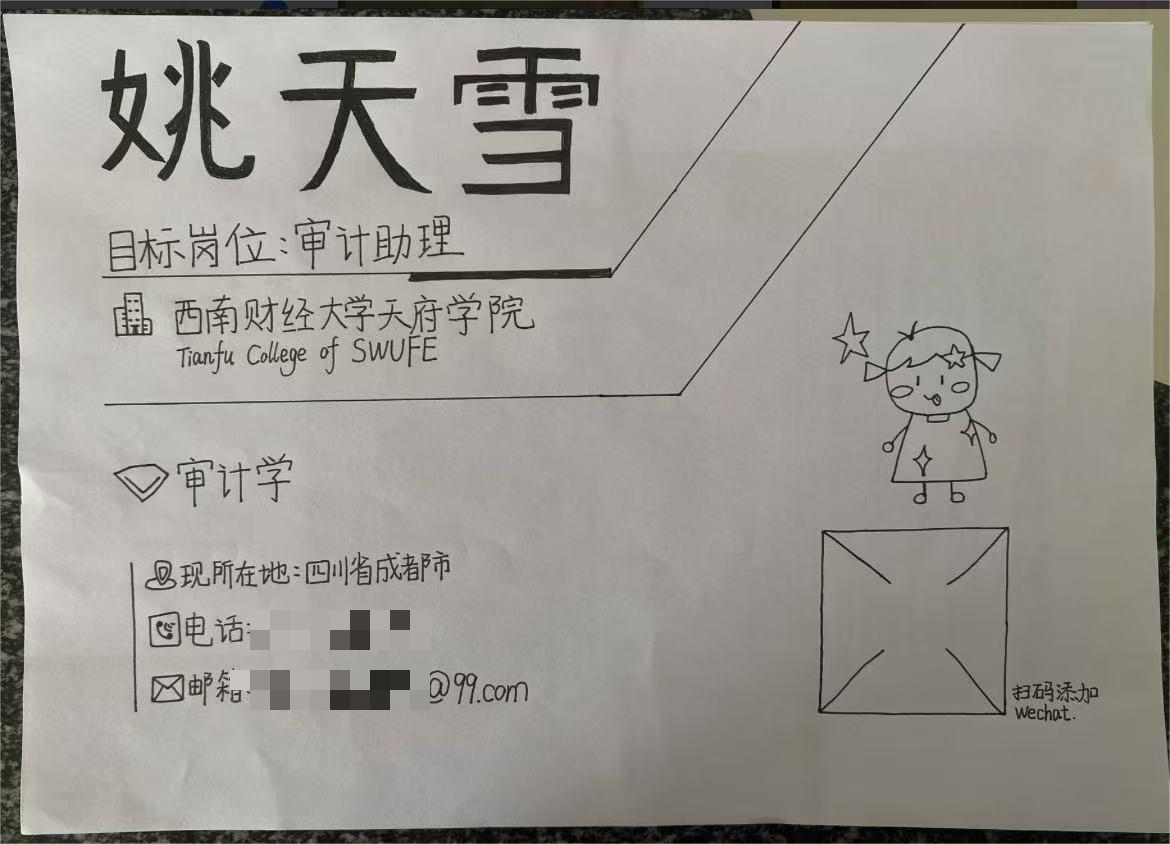 姚天雪
目标岗位:审计助理
西南财经大学天府学院
Tianfu College of SWUFE
审计学
现所在地:四川省成都市
电话:
邮箱:
@99.com
扫码添加
wechat.